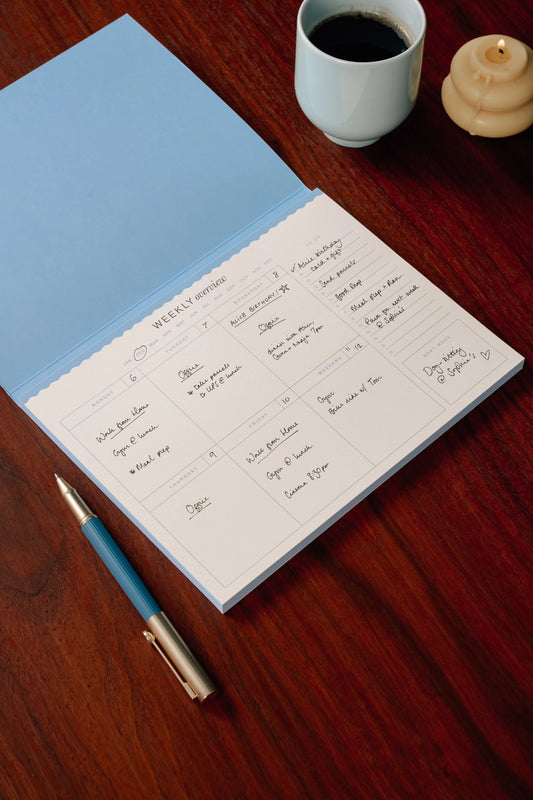 WEEKLY overview
JAN FEB MAR APR MAY JUN JUL AUG SEP OCT NOV DEC
MONDAY 6
Work from home
Gym @ lunch
* Meal prep
TUESDAY 7
Office
* Take parcels
to UPS @ lunch
WEDNESDAY 8
ALICE BIRTHDAY! ☆
Office
dinner with Alice
7pm
THURSDAY 9
Office
FRIDAY 10
Work from home
Gym @ lunch
Cinema 8.30pm
WEEKEND 11 + 12
Gym
Bike ride w/ Tom
TO DO
✓ Alice birthday
card + gift
Send parcels
Food shop
Meal prep + plan
Pack for next week
@ Sophie's
NEXT WEEK
Dog-sitting
@ Sophie's ♡